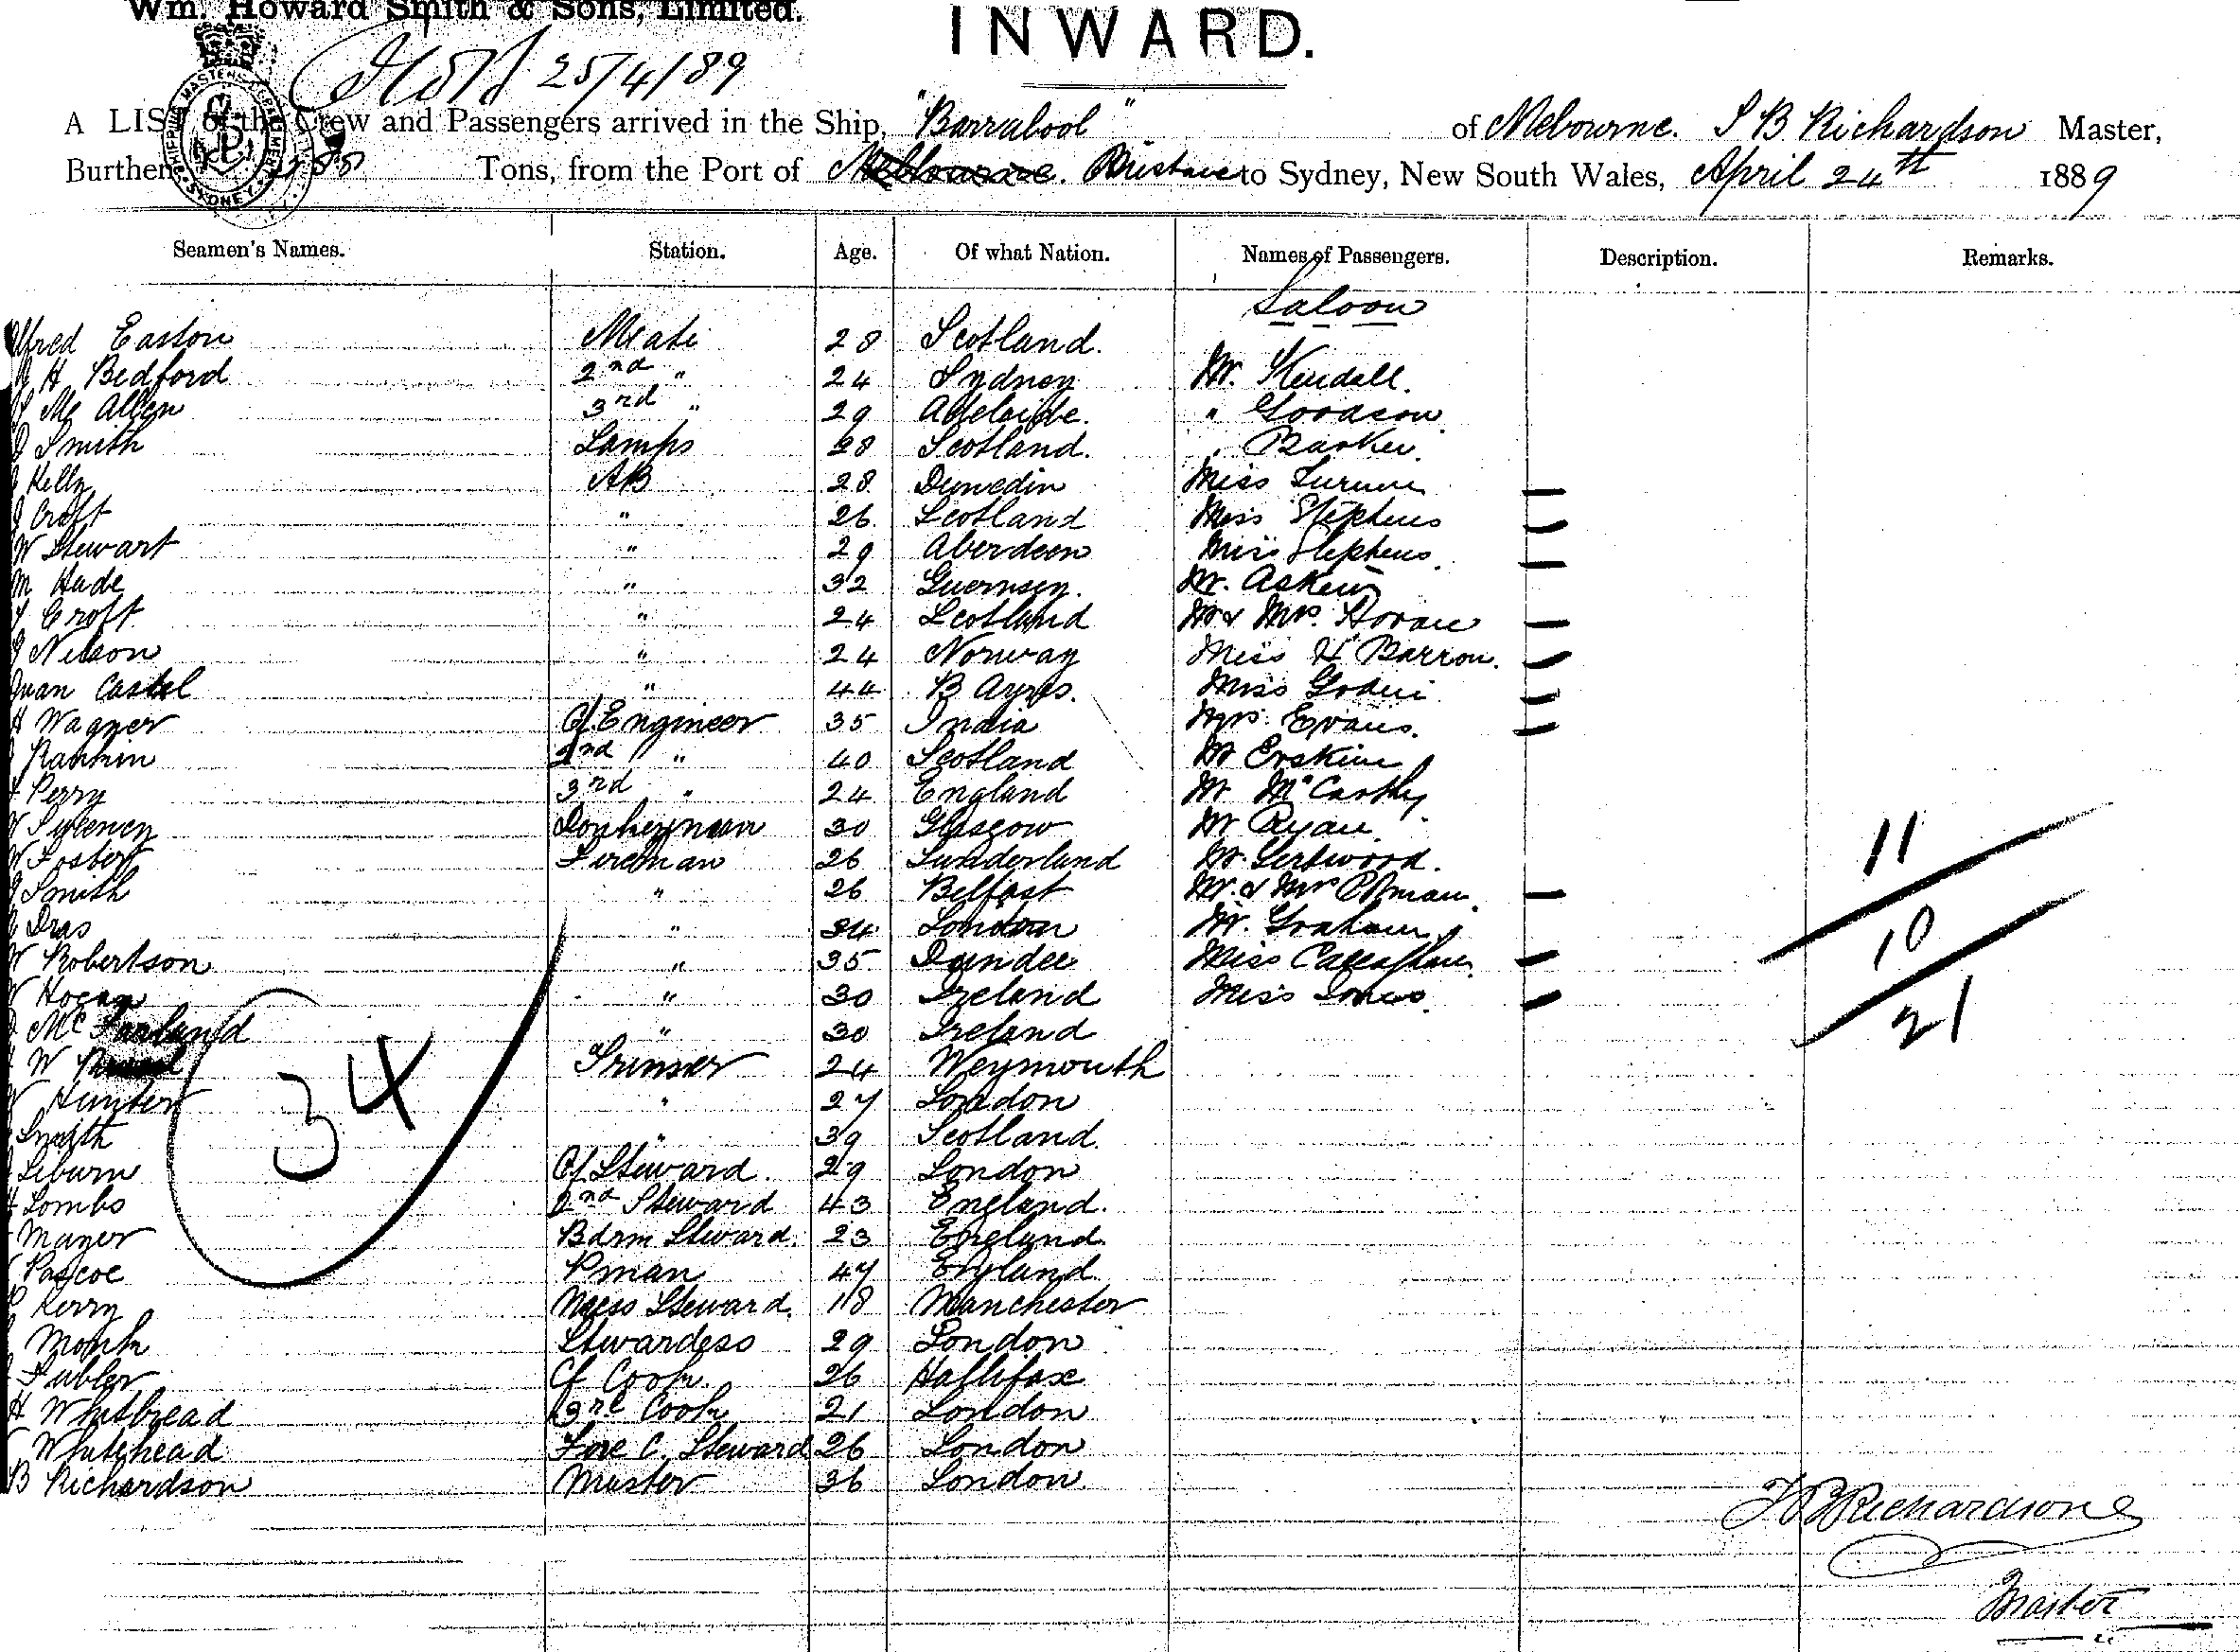 Wm. Howard Smith & Sons, Limited.
INWARD.
25/4/89
A LIST of the Crew and Passengers arrived in the Ship, "Barrabool" of Melbourne. S B Richardson Master,
Burthen Tons, from the Port of Melbourne. Brisbane to Sydney, New South Wales, April 24th 1889
Seamen's Names. Station. Age. Of what Nation. Names of Passengers. Description. Remarks.
Saloon
Alfred Easton Mate 28 Scotland.
H Bedford 2nd " 24 Sydney Mr. Kendall.
Mc Allen 3rd " 29 Adelaide. " Goodson
J Smith Lamps 28 Scotland. " Barker.
Kelly AB 28 Dunedin Miss Turner
J Croft " 26 Scotland Miss Stephens
W Stewart " 29 Aberdeen Miss Stephens
M Hude " 32 Guernsey. Mr. Askew
Croft " 24 Scotland Mr & Mrs. Doran
J Nelson " 24 Norway Miss H Barron.
Juan Castel " 44 B Ayres. Miss
H Wagner Cf. Engineer 35 India Mrs. Evans.
Rankin 2nd " 40 Scotland Mr Erskine
Perry 3rd " 24 England Mr McCarthy
W Sweeney Donkeyman 30 Glasgow Mr Ryan
W Foster Fireman 26 Sunderland Mr.
J Smith " 26 Belfast Mr. & Mrs
Dras " 24 London Mr. Graham
W Robertson " 35 Dundee Miss Callaghan
Hogan " 30 Ireland Miss Jones
McFarland " 30 Ireland
W Trimer 24 Weymouth
Hunter " 27 London
Smith " 39 Scotland.
Leburn Cf Steward. 29 London
Lombo 2nd Steward 43 England.
Mayer Bdrm Steward. 23 England.
Pascoe Pman 47 England
Kerry Mess Steward. 18 Manchester
Monk Stwardess 29 London
Tubler Cf Cook. 26 Hallifax
H Whitbread 3rd Cook 21 London
Whitehead Fore C. Steward 26 London
B Richardson Master 36 London
34
11
10
21
Richardson
Master